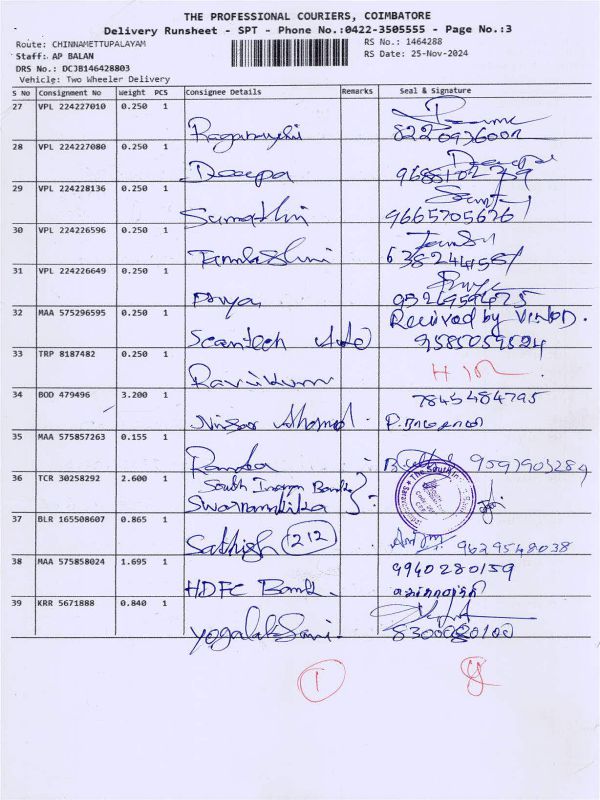 THE PROFESSIONAL COURIERS, COIMBATORE
Delivery Runsheet - SPT - Phone No.:0422-3505555 - Page No.:3
Route: CHINNAMETTUPALAYAM
RS No.: 1464288
Staff: AP BALAN
RS Date: 25-Nov-2024
DRS No.: DCJB146428803
Vehicle: Two Wheeler Delivery
S No Consignment No Weight PCS Consignee Details Remarks Seal & Signature
27 VPL 224227010 0.250 1
28 VPL 224227080 0.250 1
Deepa
29 VPL 224228136 0.250 1
Sumathi 9665705626
30 VPL 224226596 0.250 1
31 VPL 224226649 0.250 1
32 MAA 575296595 0.250 1 Recived by VINOD.
Scantech Auto 9585059524
33 TRP 8187482 0.250 1
Ravikum
34 BOD 479496 3.200 1 7845484795
Nisar Ahamed
35 MAA 575857263 0.155 1
Ramba 9597903289
36 TCR 30258292 2.600 1
South Indian Bank
Swarnambika
37 BLR 165508607 0.865 1
Sathish 212 9629548038
38 MAA 575858024 1.695 1 9940280159
HDFC Bank.
39 KRR 5671888 0.840 1
Yogalakshmi. 8300020100
1